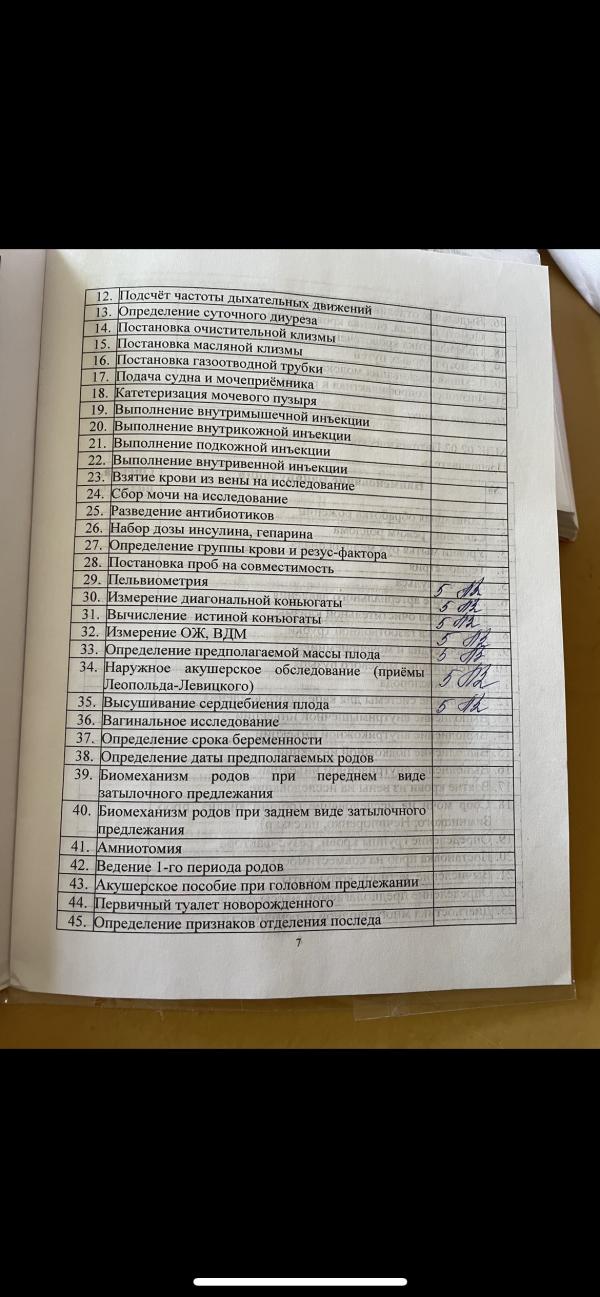 12. Подсчёт частоты дыхательных движений
13. Определение суточного диуреза
14. Постановка очистительной клизмы
15. Постановка масляной клизмы
16. Постановка газоотводной трубки
17. Подача судна и мочеприёмника
18. Катетеризация мочевого пузыря
19. Выполнение внутримышечной инъекции
20. Выполнение внутрикожной инъекции
21. Выполнение подкожной инъекции
22. Выполнение внутривенной инъекции
23. Взятие крови из вены на исследование
24. Сбор мочи на исследование
25. Разведение антибиотиков
26. Набор дозы инсулина, гепарина
27. Определение группы крови и резус-фактора
28. Постановка проб на совместимость
29. Пельвиометрия 5
30. Измерение диагональной коньюгаты 5
31. Вычисление истиной конъюгаты 5
32. Измерение ОЖ, ВДМ 5
33. Определение предполагаемой массы плода 5
34. Наружное акушерское обследование (приёмы
Леопольда-Левицкого) 5
35. Высушивание сердцебиения плода 5
36. Вагинальное исследование
37. Определение срока беременности
38. Определение даты предполагаемых родов
39. Биомеханизм родов при переднем виде
затылочного предлежания
40. Биомеханизм родов при заднем виде затылочного
предлежания
41. Амниотомия
42. Ведение 1-го периода родов
43. Акушерское пособие при головном предлежании
44. Первичный туалет новорожденного
45. Определение признаков отделения последа
7